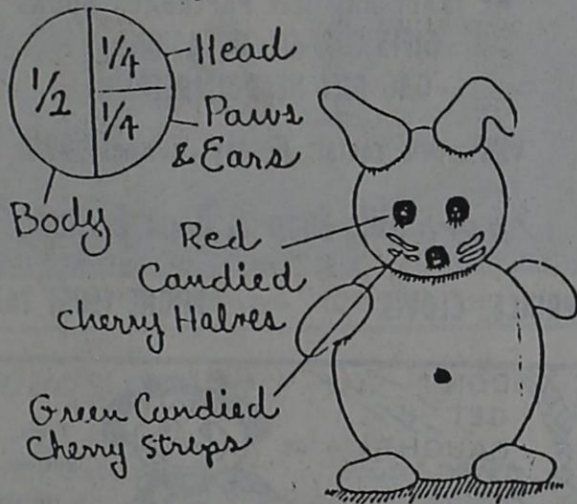 1/2
1/4
1/4
Head
Paws
& Ears
Body
Red
Candied
Cherry Halves
Green Candied
Cherry Strips